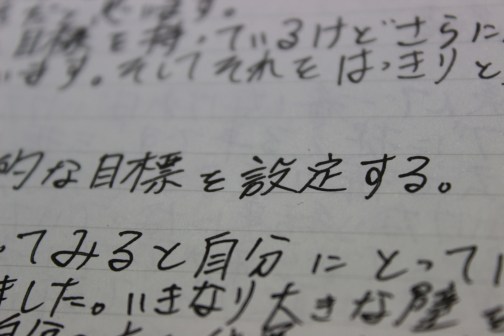 目標を持っているけどさらに
います。そしてそれをはっきりと
的な目標を設定する。
ってみると自分にとってい
ました。いきなり大きな壁を